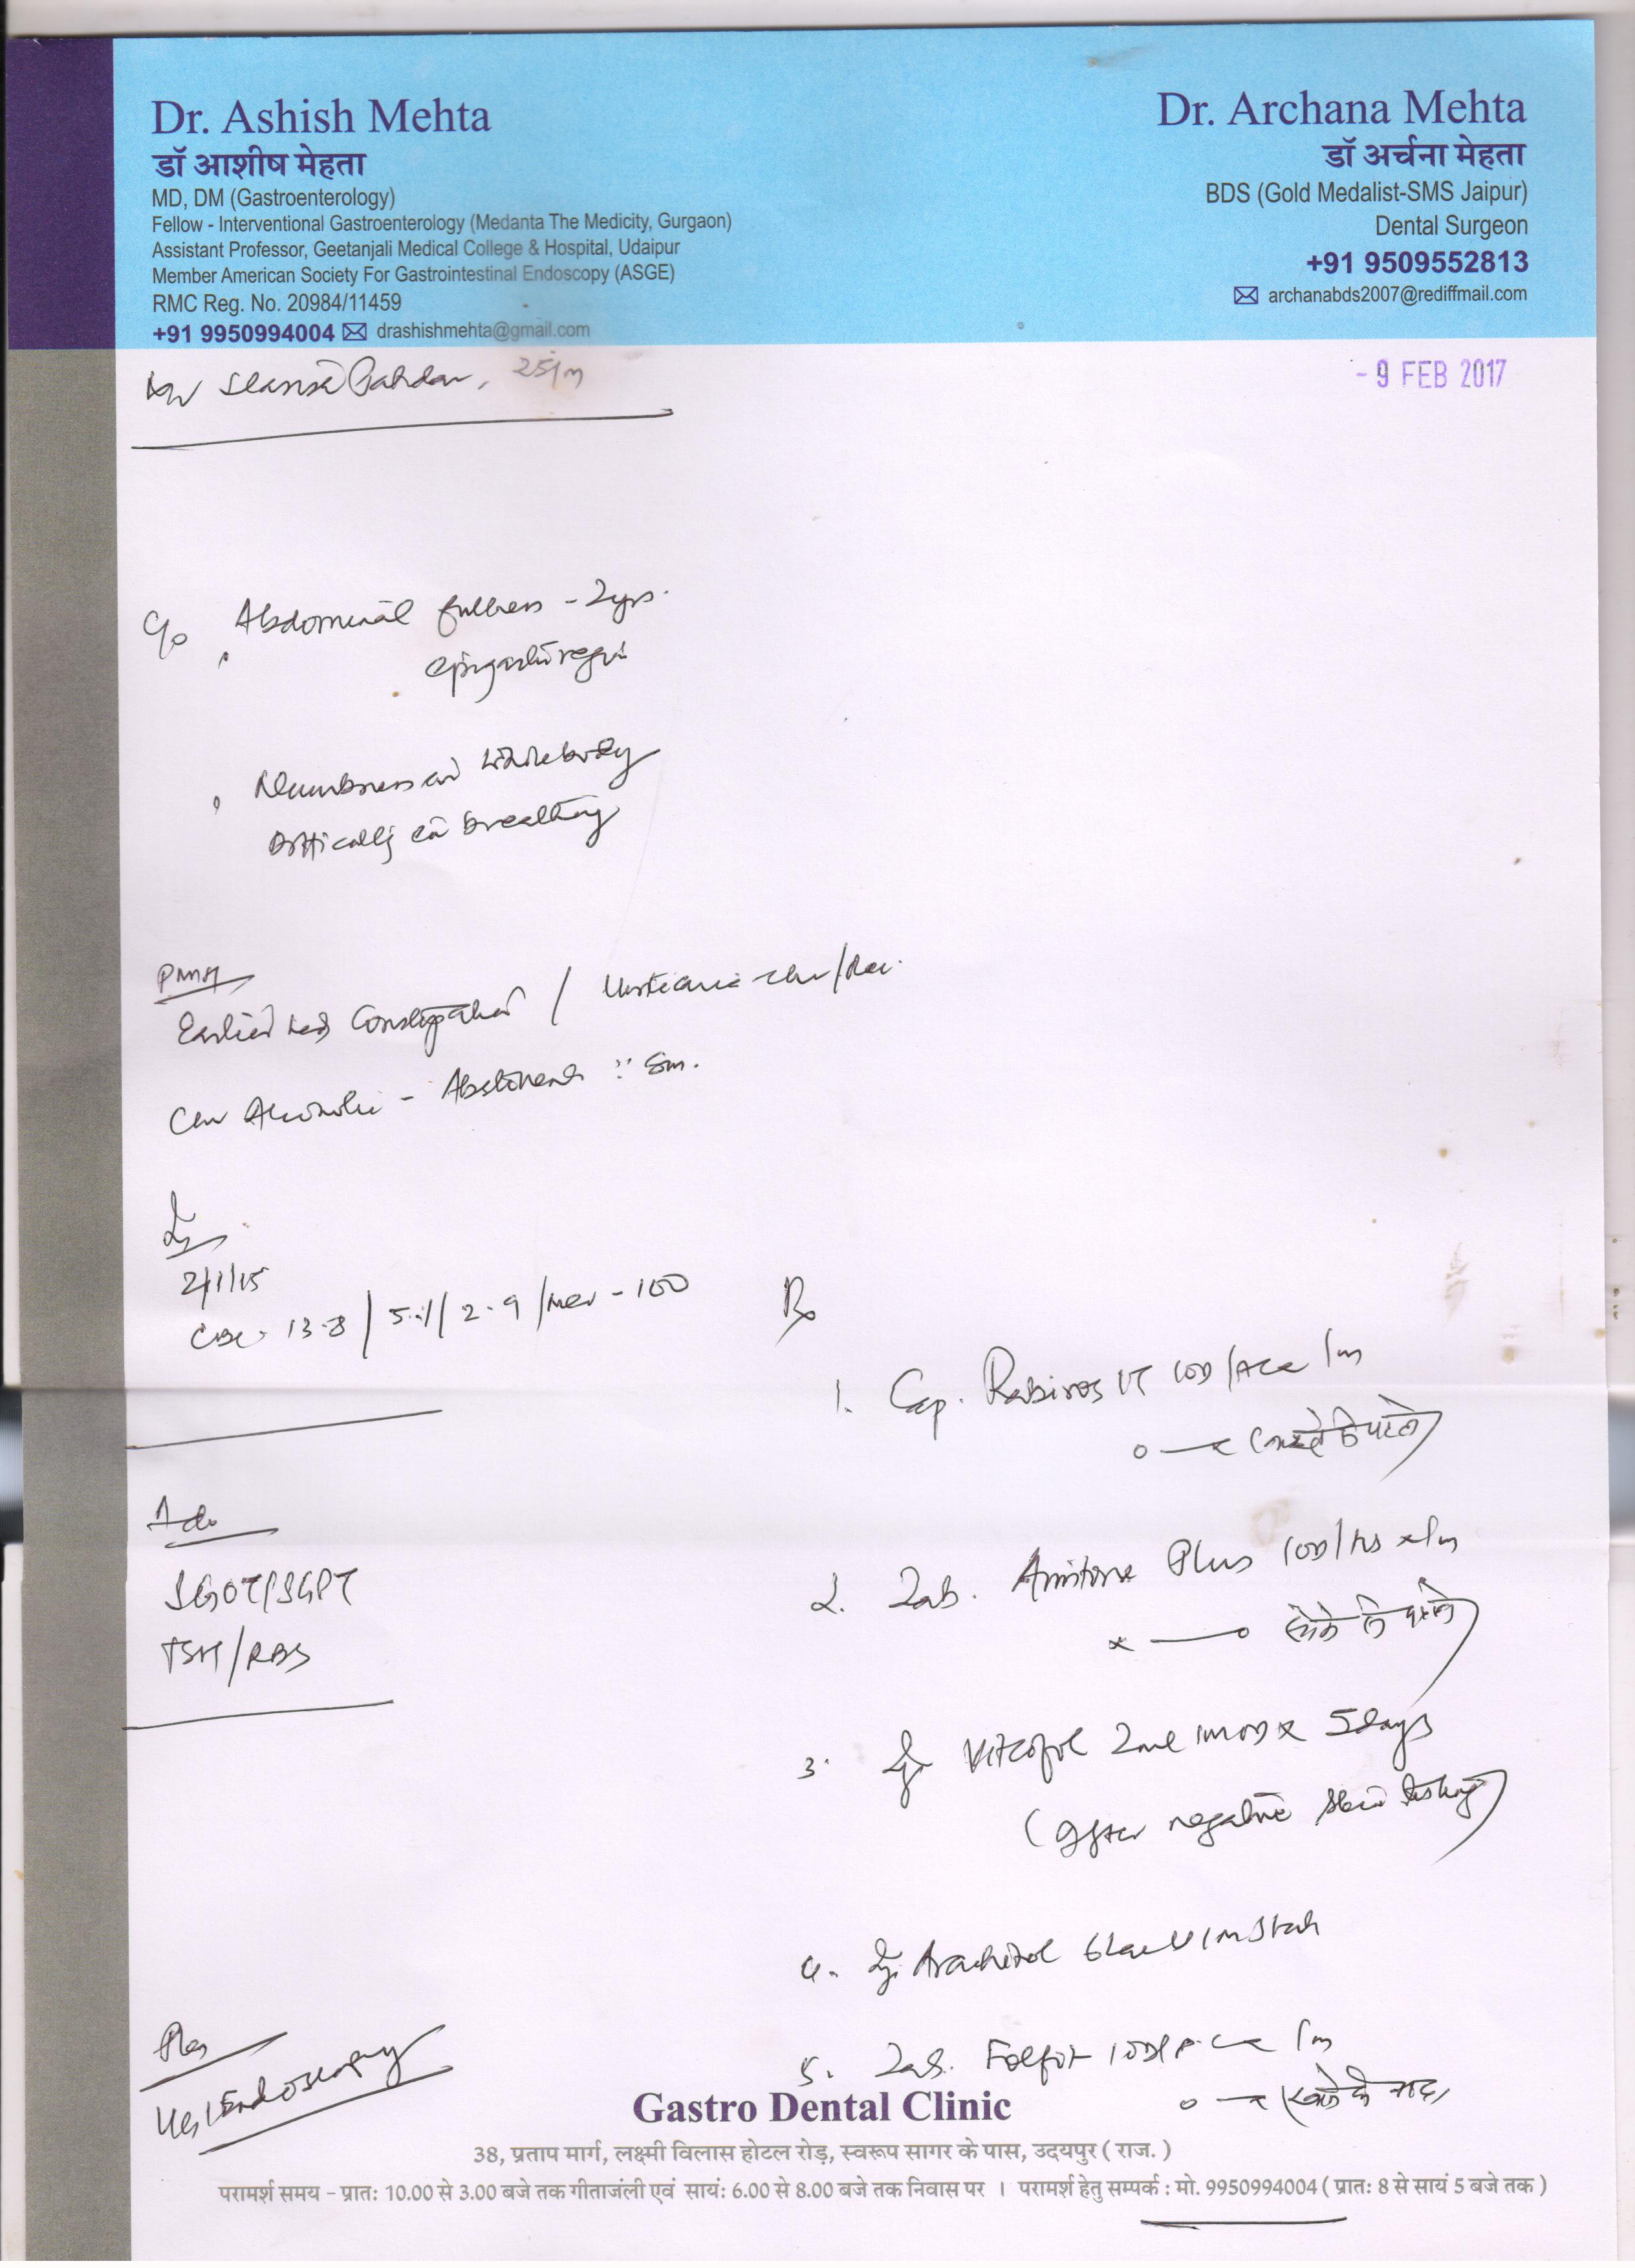 Dr. Ashish Mehta
डॉ आशीष मेहता
MD, DM (Gastroenterology)
Fellow - Interventional Gastroenterology (Medanta The Medicity, Gurgaon)
Assistant Professor, Geetanjali Medical College & Hospital, Udaipur
Member American Society For Gastrointestinal Endoscopy (ASGE)
RMC Reg. No. 20984/11459
+91 9950994004 drashishmehta@gmail.com
Dr. Archana Mehta
डॉ अर्चना मेहता
BDS (Gold Medalist-SMS Jaipur)
Dental Surgeon
+91 9509552813
archanabds2007@rediffmail.com
25/m
- 9 FEB 2017
C/o Abdominal fullness - 2yrs.
Numbness in whole body
Difficulty in breathing
Earlier had Constipation /
2/1/15
CBC - 13.8 / 5.1 / 2.9 / MCV - 100
Rx
1. Cap.
Adv
SGOT/SGPT
TSH/RBS
2. Tab. Plus
3. Inj Vitcofol 2ml IM OD x 5days
(After negative skin testing)
4. Inj. Arachitol 6Lac IM Stat
5. Tab.
(खाने के बाद)
Plan
UGI Endoscopy
Gastro Dental Clinic
38, प्रताप मार्ग, लक्ष्मी विलास होटल रोड़, स्वरूप सागर के पास, उदयपुर ( राज. )
परामर्श समय - प्रातः 10.00 से 3.00 बजे तक गीताजंली एवं सायं: 6.00 से 8.00 बजे तक निवास पर । परामर्श हेतु सम्पर्क : मो. 9950994004 ( प्रातः 8 से सायं 5 बजे तक )